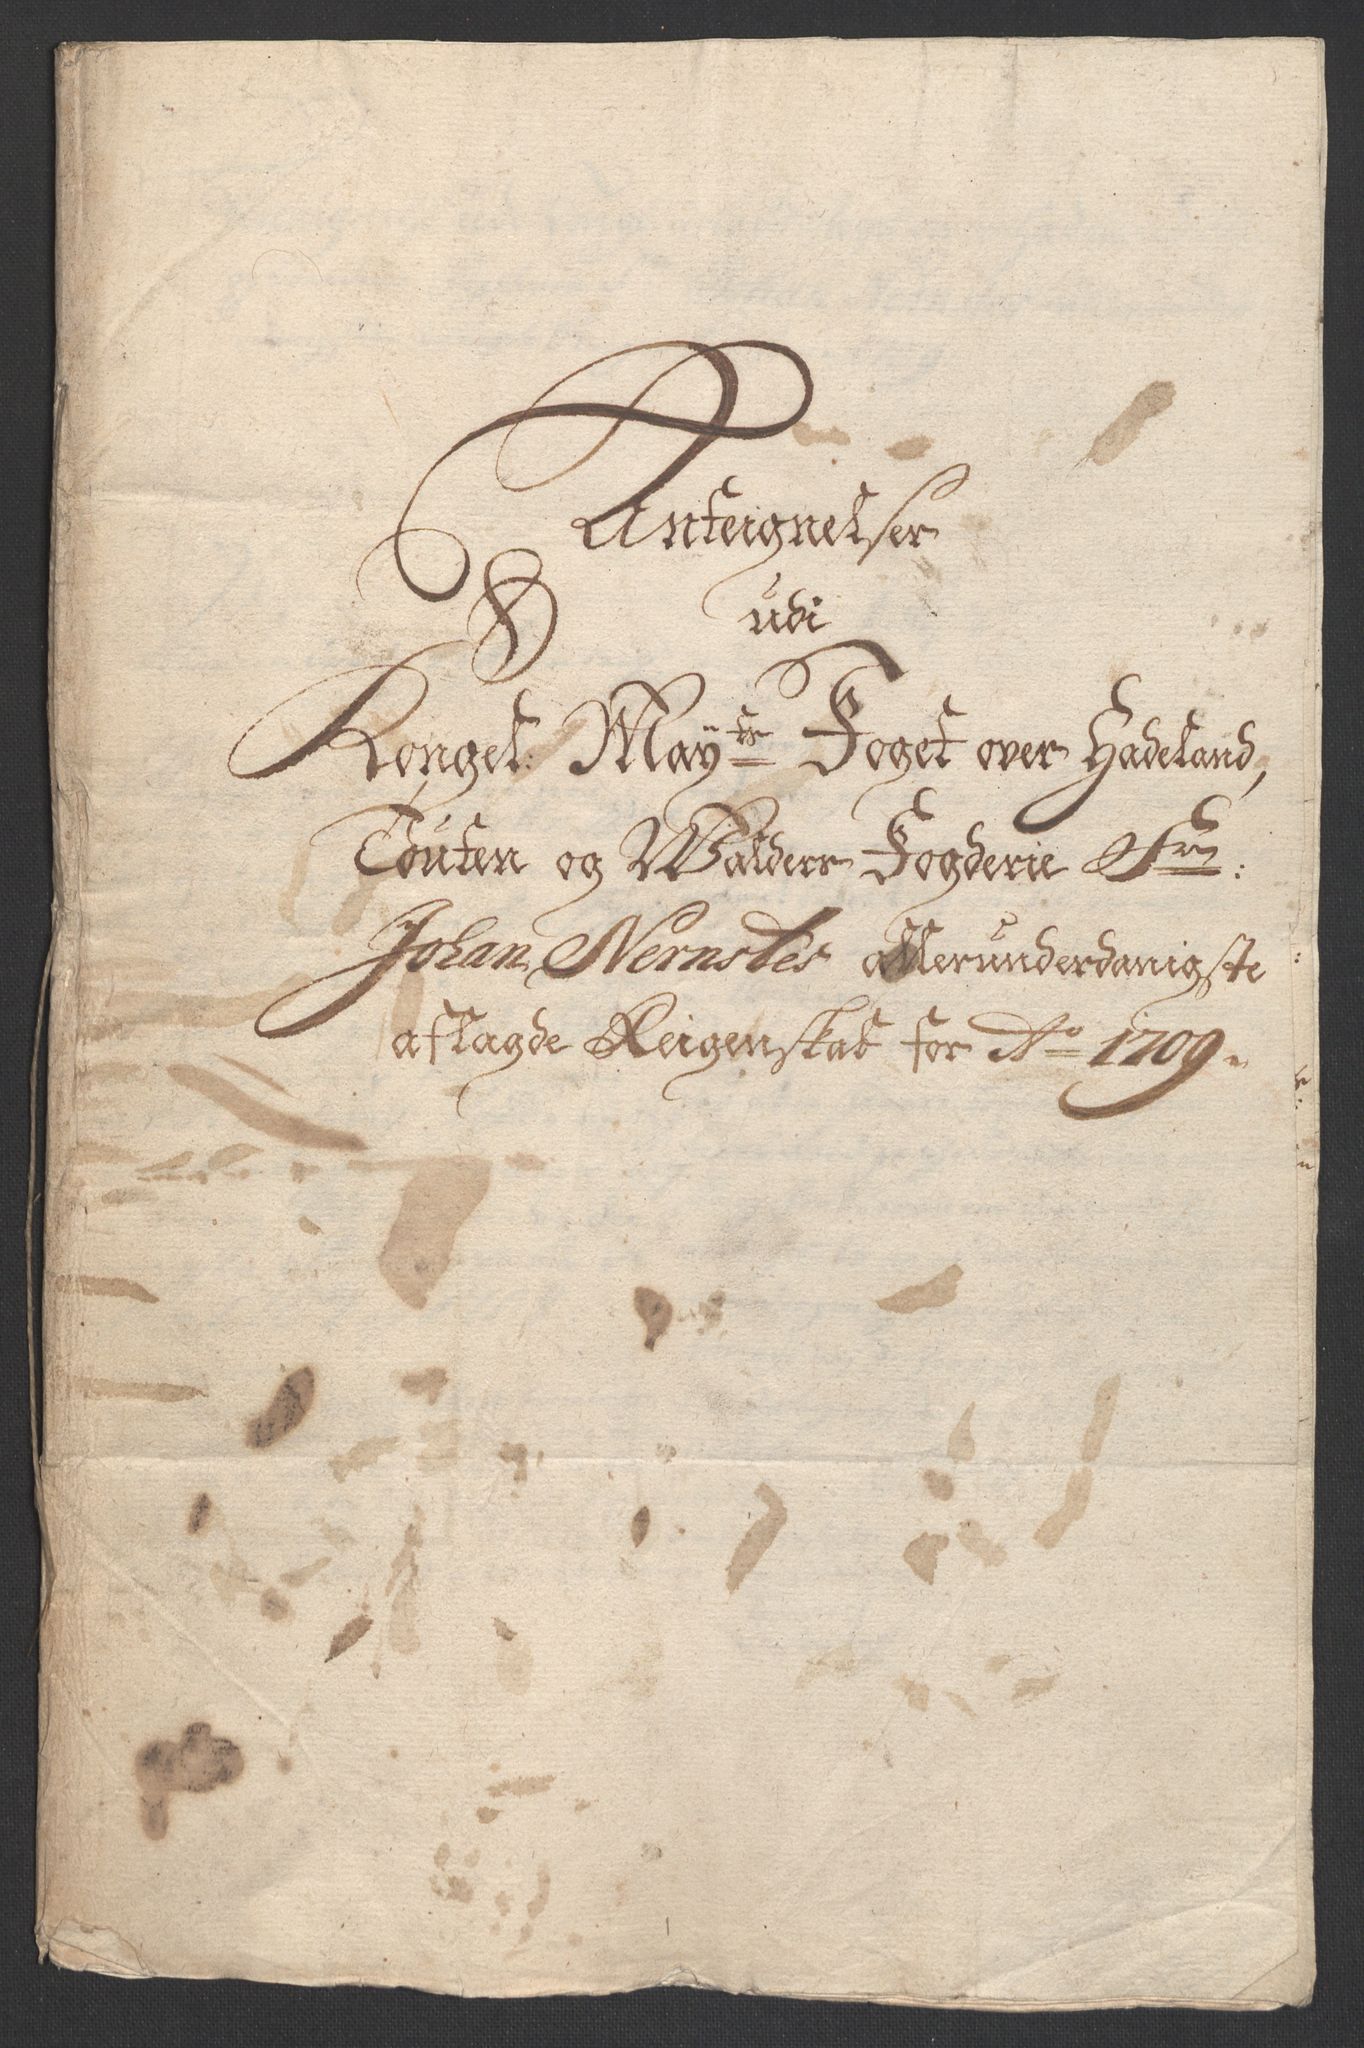 Anteignelser
udi
Kongel: Mayts Foget over Hadeland,
Touten og Walders Fogderie Sr:
Johan Nernstes allerunderdanigste
aflagde Reigenskab for Ao 1709.